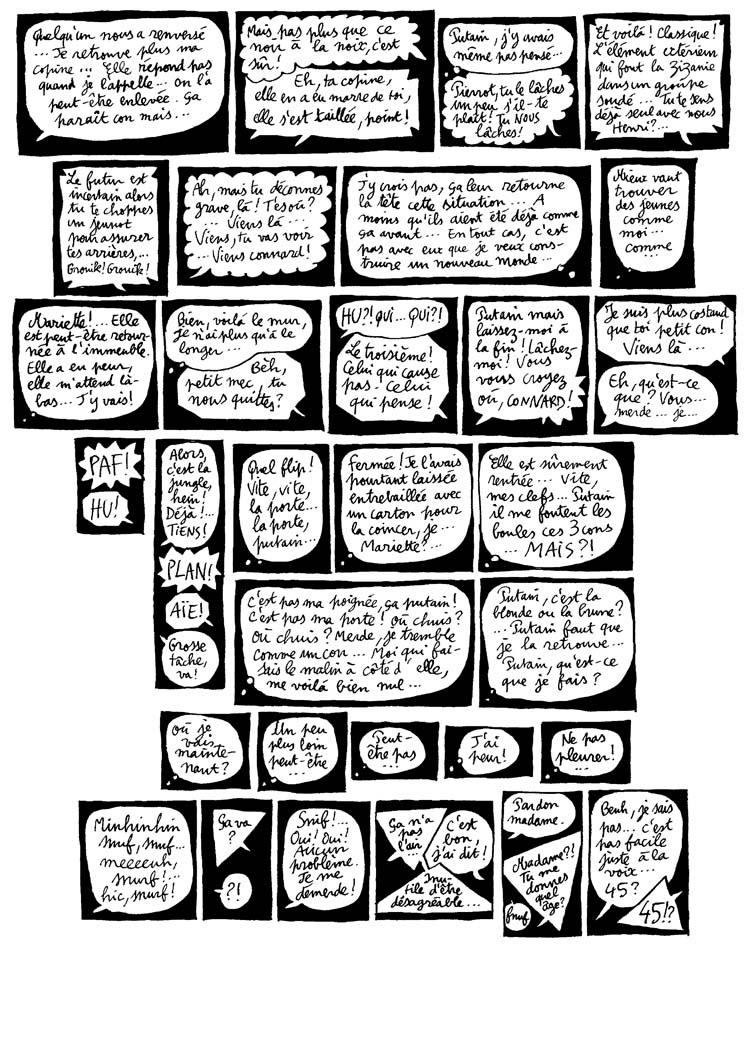 Quelqu'un nous a renversé
... Je retrouve plus ma
copine ... Elle répond pas
quand je l'appelle ... on l'a
peut-être enlevée. Ça
paraît con mais ...
Mais pas plus que ce
noir à la noix, c'est
sûr!
Eh, ta copine,
elle en a eu marre de toi,
elle s'est taillée, point!
Putain, j'y avais
même pas pensé ...
Pierrot, tu le lâches
un peu s'il-te
plaît! Tu NOUS
lâches!
Et voilà! Classique!
L'élément extérieur
qui fout la zizanie
dans un groupe
soudé ... Tu te sens
déjà seul avec nous
Henri? ...
Le futur est
incertain alors
tu te choppes
un jeunot
pour assurer
tes arrières, ...
Grouik! Grouik!
Ah, mais tu déconnes
grave, là! T'es où?
... Viens là ...
Viens, tu vas voir
... Viens connard!
J'y crois pas, ça leur retourne
la tête cette situation ... A
moins qu'ils aient été déjà comme
ça avant ... En tout cas, c'est
pas avec eux que je veux cons-
truire un nouveau monde ...
Mieux vaut
trouver
des jeunes
comme
moi ...
comme
...
Mariette! ... Elle
est peut-être retour-
née à l'immeuble.
Elle a eu peur,
elle m'attend là-
bas ... J'y vais!
Bien, voilà le mur,
je n'ai plus qu'à le
longer ...
Bèh,
petit mec, tu
nous quittes?
HU?! QUI ... QUI?!
Le troisième!
Celui qui cause
pas. Celui
qui pense!
Putain mais
laissez-moi à
la fin! Lâchez-
moi! Vous
vous croyez
où, CONNARD!
Je suis plus costaud
que toi petit con!
Viens là ...
Eh, qu'est-ce
que? Vous ...
merde ... je ...
PAF!
HU!
Alors,
c'est la
jungle,
hein!
Déjà! ...
TIENS!
PLAN!
AÏE!
Grosse
tâche,
va!
Quel flip!
Vite, vite,
la porte ...
la porte,
putain ...
Fermée! Je l'avais
pourtant laissée
entrebaillée avec
un carton pour
la coincer, je ...
Mariette? ...
Elle est sûrement
rentrée ... Vite,
mes clefs ... Putain
il me foutent les
boules ces 3 cons
... MAIS?!
C'est pas ma poignée, ça putain!
C'est pas ma porte! Où chuis?
Où chuis? Merde, je tremble
comme un con ... Moi qui fai-
sais le malin à côté d'elle,
me voilà bien nul ...
Putain, c'est la
blonde ou la brune?
... Putain faut que
je la retrouve ...
Putain, qu'est-ce
que je fais?
Où je
vais
mainte-
nant?
Un peu
plus loin
peut-être
...
Peut-
être pas
...
J'ai
peur!
Ne pas
pleurer!
...
Minhinhin
snuf, snuf ...
meeeeuh,
snurf! ...
hic, snurf!
Ça va
?
?!
Snif! ...
Oui! Oui!
Aucun
problème.
Je me
démerde!
Ça n'a
pas
l'air ...
C'est
bon,
j'ai dit!
Inu-
tile d'être
désagréable ...
Pardon
madame.
Madame?!
Tu me
donnes
quel
âge?
snuf
Beuh, je sais
pas ... c'est
pas facile
juste à la
voix ...
45?
45!?